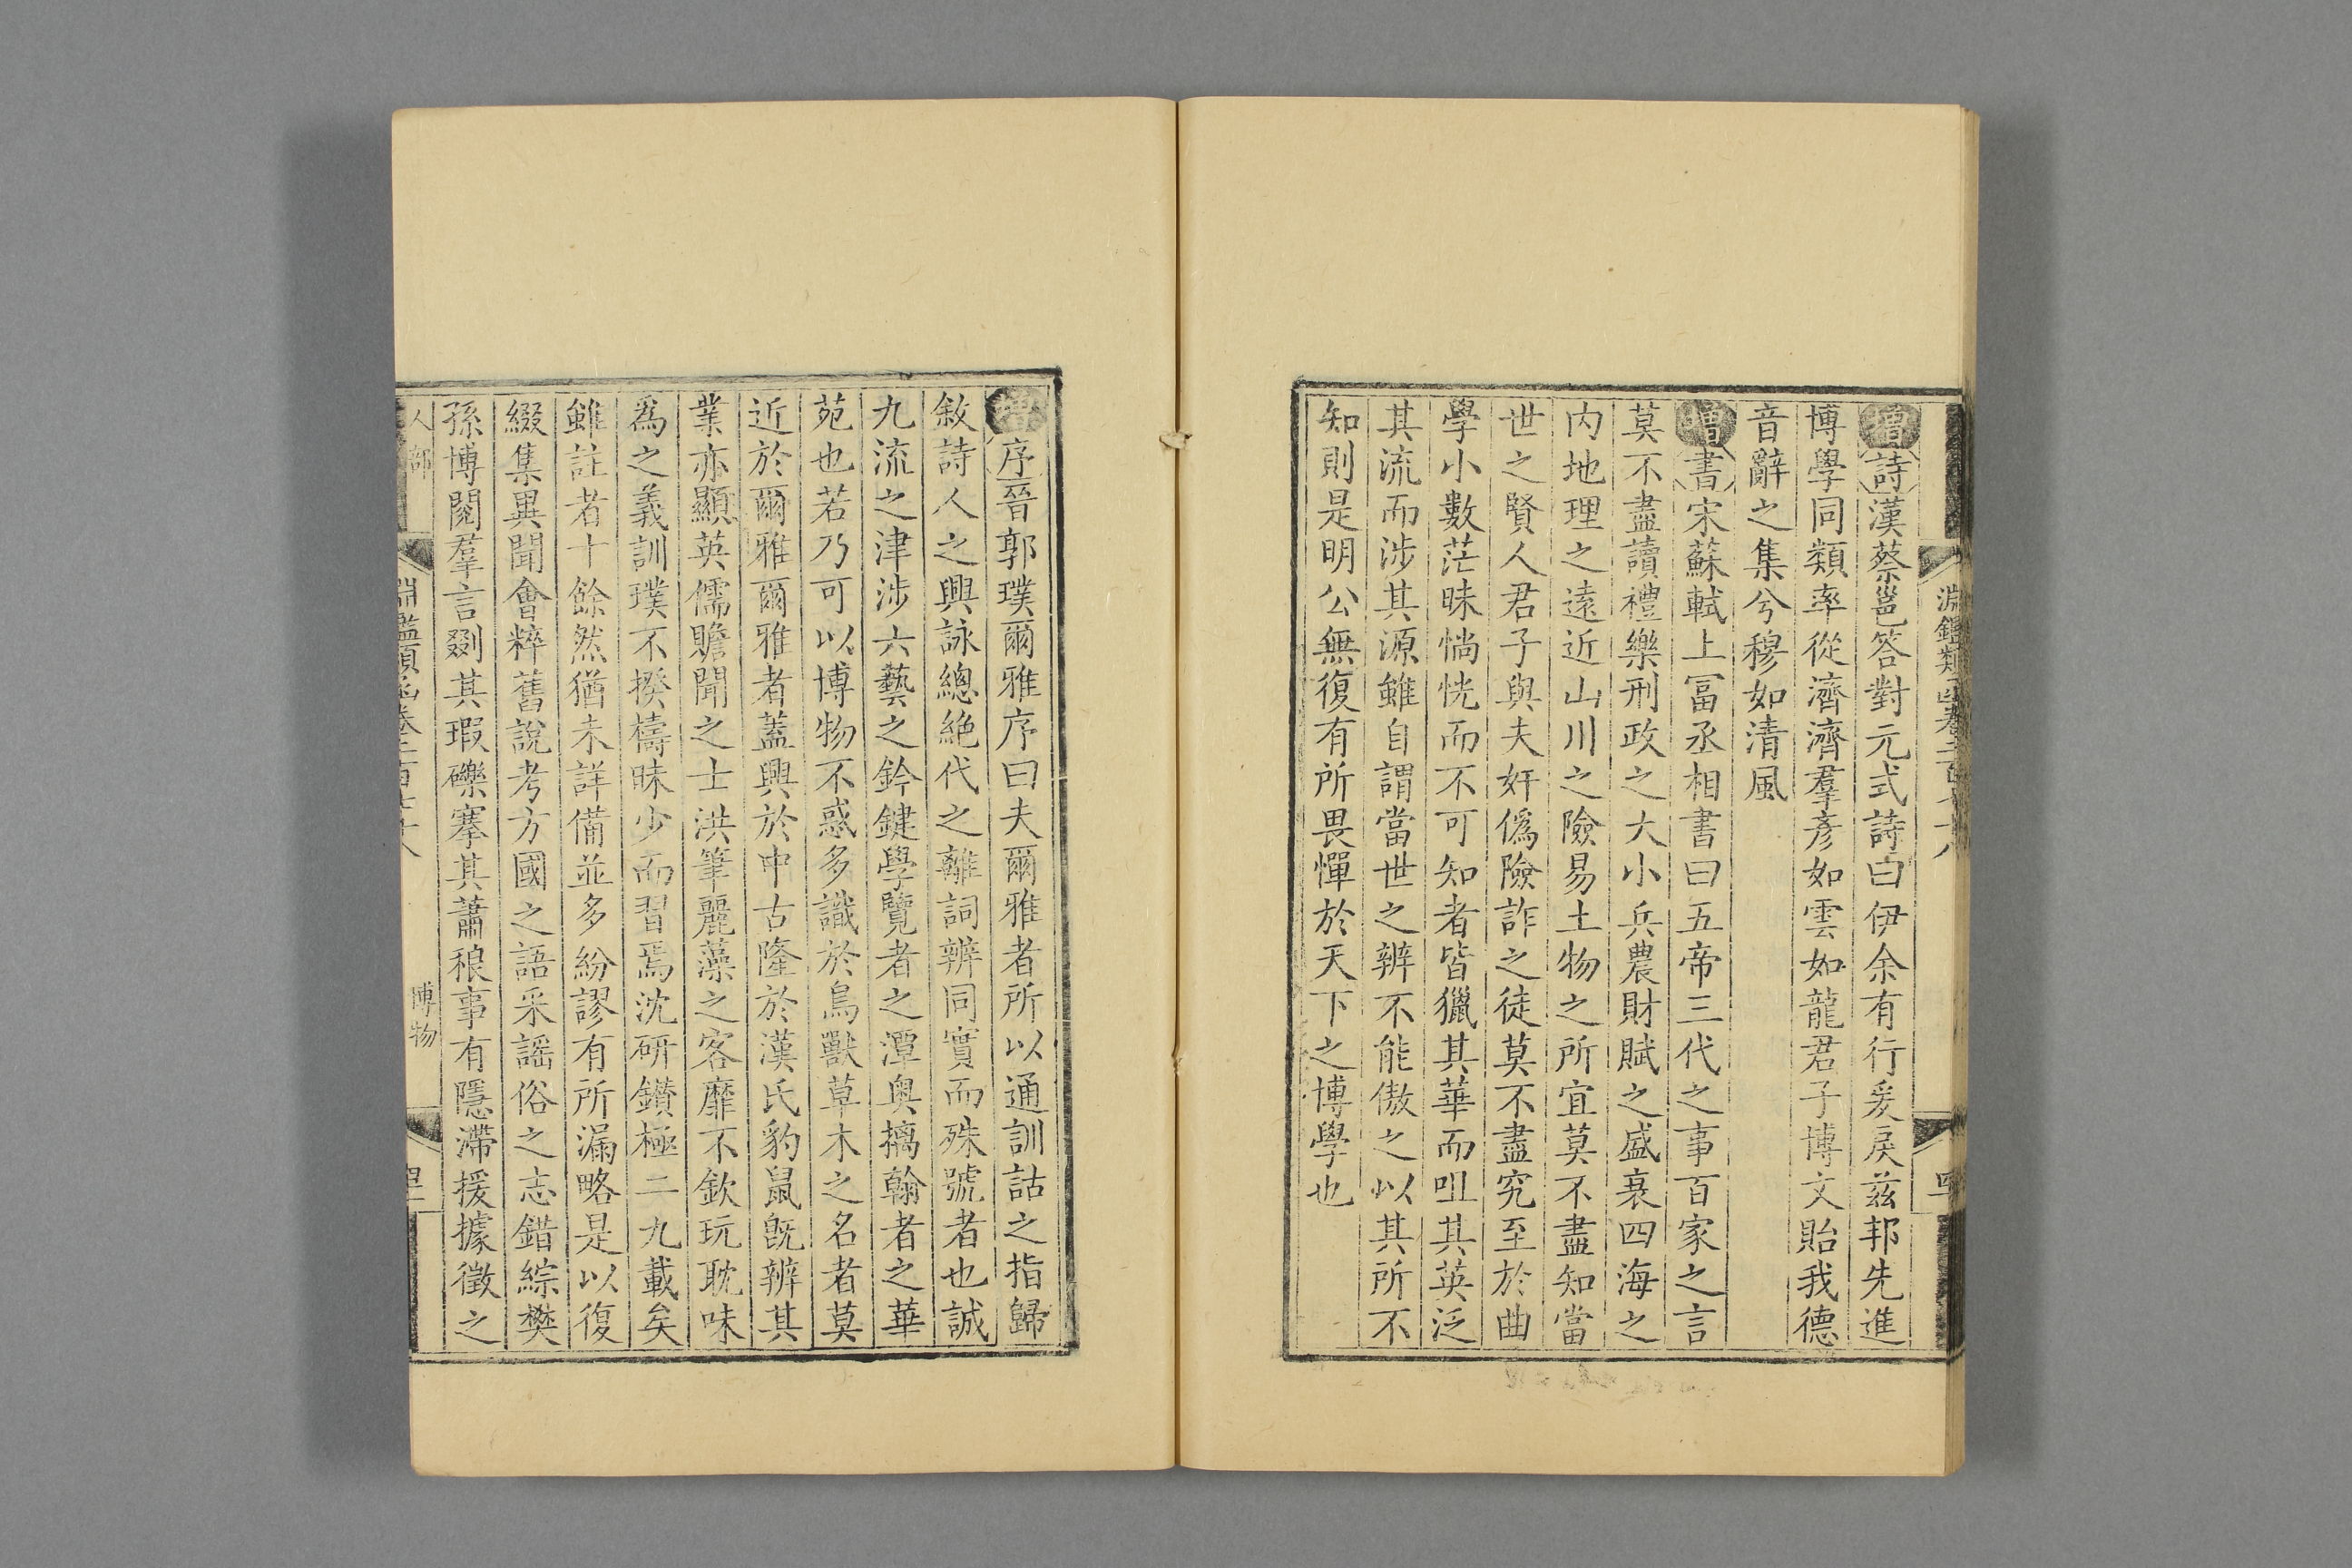 淵鑑類函卷二百十八
增詩漢蔡邕答對元式詩曰伊余有行爰戾茲邦先進
博學同類率從濟濟羣彥如雲如龍君子博文貽我德
音辭之集兮穆如清風
增書宋蘇軾上冨丞相書曰五帝三代之事百家之言
莫不盡讀禮樂刑政之大小兵農財賦之盛衰四海之
内地理之遠近山川之險易土物之所宜莫不盡知當
世之賢人君子與夫奸僞險詐之徒莫不盡究至於曲
學小數茫昧惝恍而不可知者皆獵其華而咀其英泛
其流而涉其源雖自謂當世之辨不能傲之以其所不
知則是明公無復有所畏憚於天下之博學也
增序晉郭璞爾雅序曰夫爾雅者所以通訓詁之指歸
敘詩人之興詠總絶代之離詞辨同實而殊號者也誠
九流之津涉六藝之鈐鍵學覽者之潭奥摛翰者之華
苑也若乃可以博物不惑多識於鳥獸草木之名者莫
近於爾雅爾雅者蓋興於中古隆於漢氏豹鼠旣辨其
業亦顯英儒贍聞之士洪筆麗藻之客靡不欽玩耽味
爲之義訓璞不揆檮昧少而習焉沈研鑽極二九載矣
雖註者十餘然猶未詳備並多紛謬有所漏略是以復
綴集異聞會粹舊說考方國之語采謡俗之志錯綜樊
孫博閱羣言剟其瑕礫搴其蕭稂事有隱滯援據徵之
人部 淵鑑類函卷二百 博物